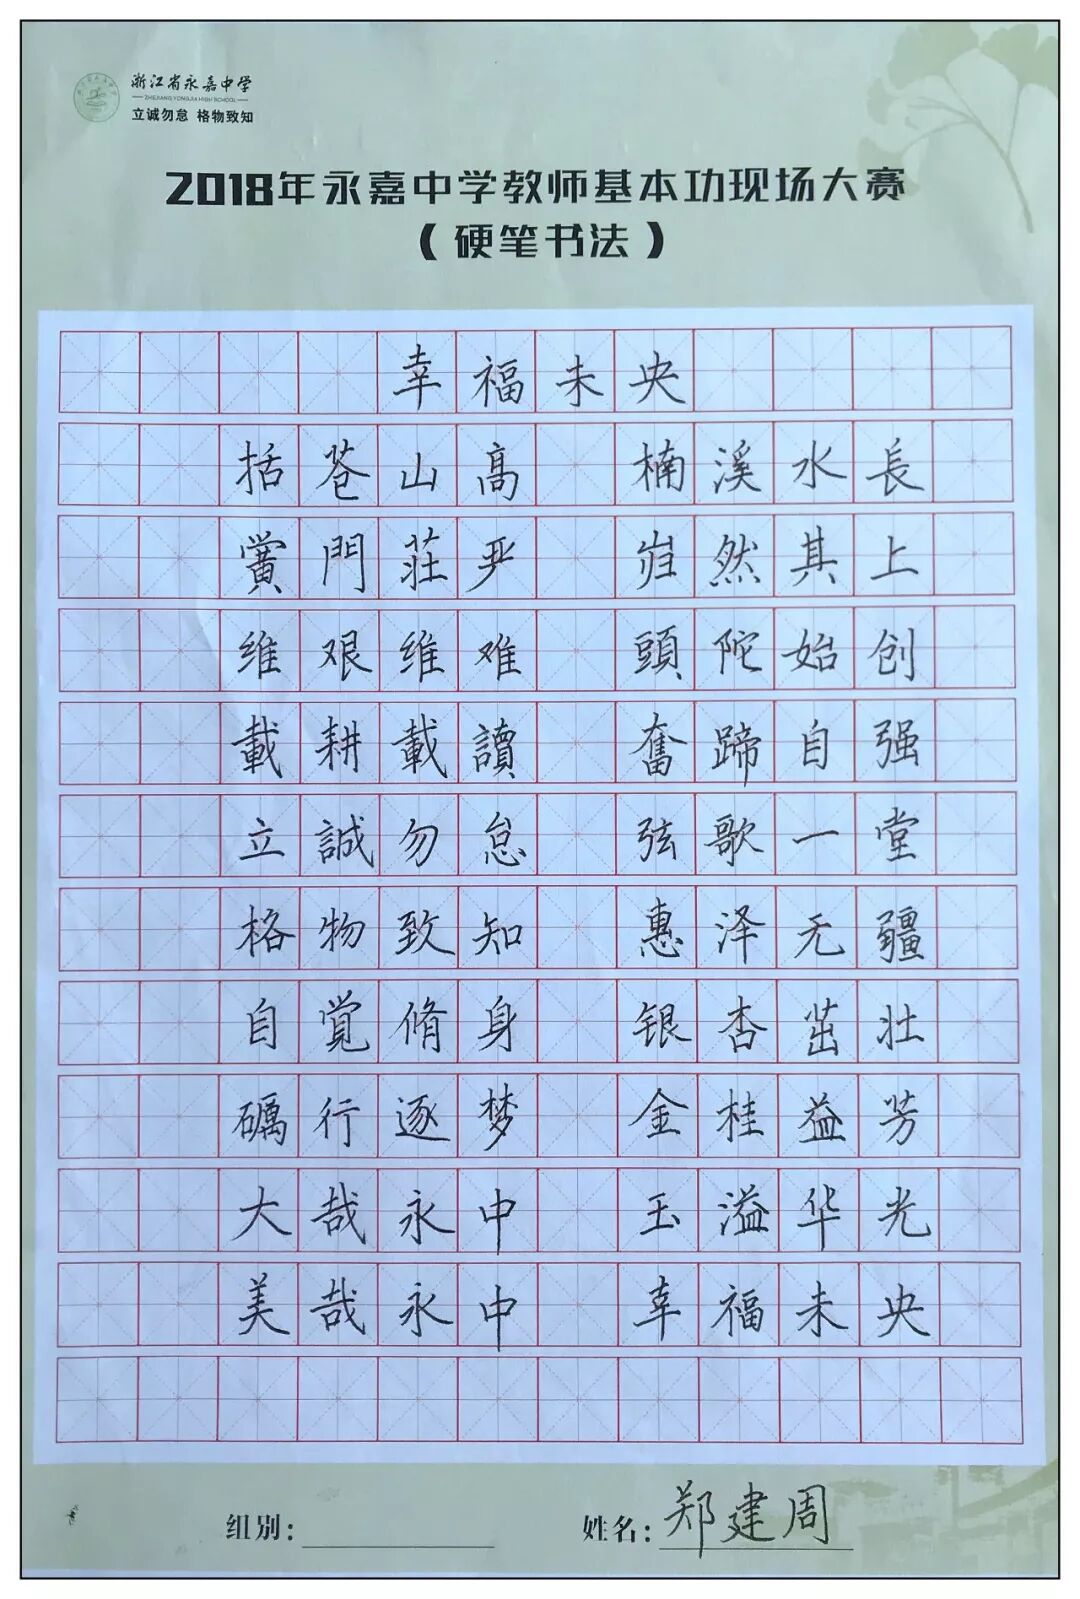 浙江省永嘉中学
ZHEJIANG YONGJIA HIGH SCHOOL
立诚勿怠 格物致知
2018年永嘉中学教师基本功现场大赛
（硬笔书法）
幸福未央
括苍山高 楠溪水長
黌門莊严 岿然其上
维艰维难 頭陀始创
載耕載讀 奮蹄自强
立誠勿怠 弦歌一堂
格物致知 惠泽无疆
自覚脩身 银杏茁壮
礪行逐梦 金桂益芳
大哉永中 玉溢华光
美哉永中 幸福未央
组别：
姓名：郑建周